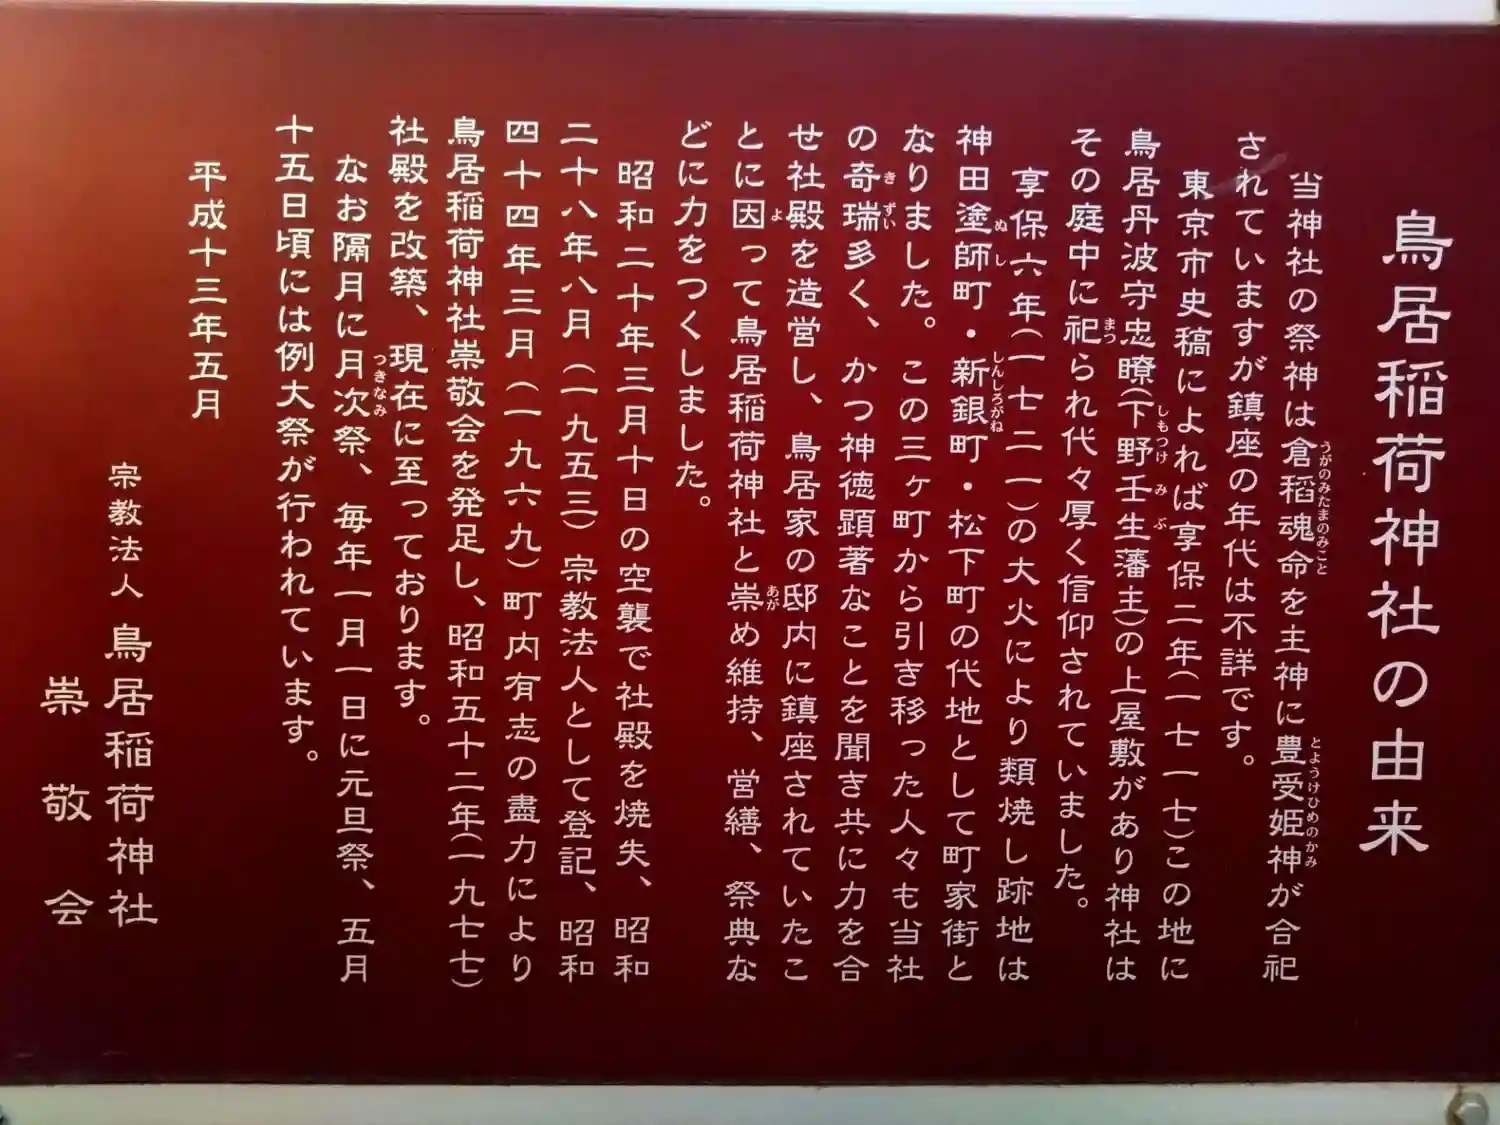 鳥居稲荷神社の由来
当神社の祭神は倉稻魂命を主神に豊受姫神が合祀
うがのみたまのみこと
とようけひめのかみ
されていますが鎮座の年代は不詳です。
東京市史稿によれば享保二年(一七一七)この地に
鳥居丹波守忠瞭(下野壬生藩主)の上屋敷があり神社は
しもつけ
み
ぶ
その庭中に祀られ代々厚く信仰されていました。
まつ
享保六年(一七二一)の大火により類焼し跡地は
神田塗師町・新銀町・松下町の代地として町家街と
ぬし
しんしろがね
なりました。この三ヶ町から引き移った人々も当社
の奇瑞多く、かつ神徳顕著なことを聞き共に力を合
き
ずい
せ社殿を造営し、鳥居家の邸内に鎮座されていたこ
とに因って鳥居稲荷神社と崇め維持、営繕、祭典な
よ
あが
どに力をつくしました。
昭和二十年三月十日の空襲で社殿を焼失、昭和
二十八年八月(一九五三)宗教法人として登記、昭和
四十四年三月(一九六九)町内有志の盡力により
鳥居稲荷神社崇敬会を発足し、昭和五十二年(一九七七)
社殿を改築、現在に至っております。
なお隔月に月次祭、毎年一月一日に元旦祭、五月
つきなみ
十五日頃には例大祭が行われています。
平成十三年五月
宗教法人 鳥居稲荷神社
崇敬会